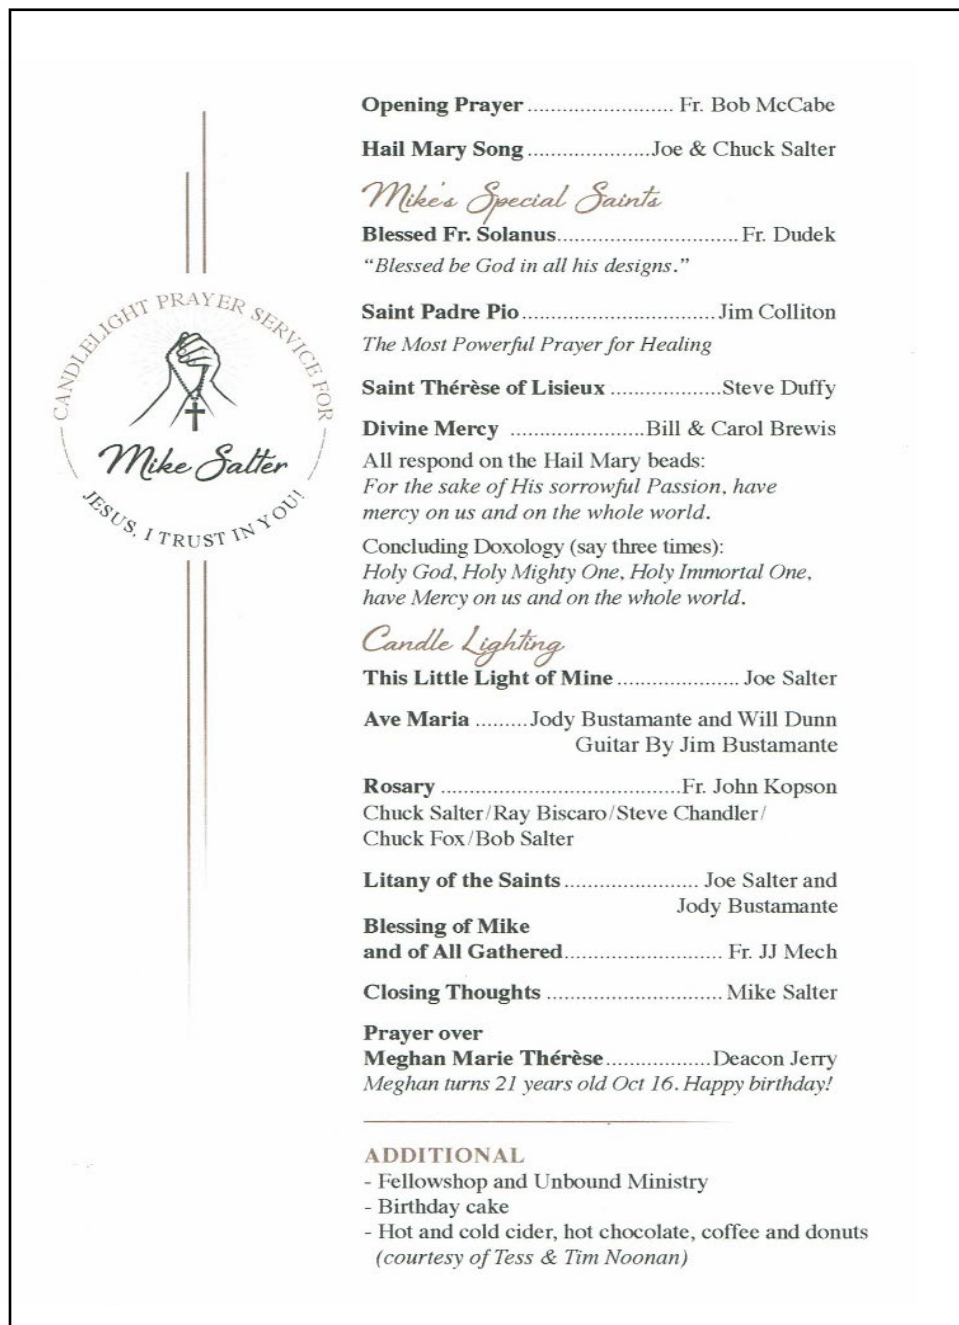 CANDLELIGHT PRAYER SERVICE FOR
Mike Salter
JESUS, I TRUST IN YOU!
Opening Prayer ......................... Fr. Bob McCabe
Hail Mary Song .....................Joe & Chuck Salter
Mike's Special Saints
Blessed Fr. Solanus............................... Fr. Dudek
“Blessed be God in all his designs.”
Saint Padre Pio.................................Jim Colliton
The Most Powerful Prayer for Healing
Saint Thérèse of Lisieux ...................Steve Duffy
Divine Mercy .......................Bill & Carol Brewis
All respond on the Hail Mary beads:
For the sake of His sorrowful Passion, have
mercy on us and on the whole world.
Concluding Doxology (say three times):
Holy God, Holy Mighty One, Holy Immortal One,
have Mercy on us and on the whole world.
Candle Lighting
This Little Light of Mine ..................... Joe Salter
Ave Maria .........Jody Bustamante and Will Dunn
Guitar By Jim Bustamante
Rosary .........................................Fr. John Kopson
Chuck Salter/Ray Biscaro/Steve Chandler/
Chuck Fox/Bob Salter
Litany of the Saints....................... Joe Salter and
Jody Bustamante
Blessing of Mike
and of All Gathered........................... Fr. JJ Mech
Closing Thoughts .............................. Mike Salter
Prayer over
Meghan Marie Thérèse..................Deacon Jerry
Meghan turns 21 years old Oct 16. Happy birthday!
ADDITIONAL
- Fellowshop and Unbound Ministry
- Birthday cake
- Hot and cold cider, hot chocolate, coffee and donuts
(courtesy of Tess & Tim Noonan)